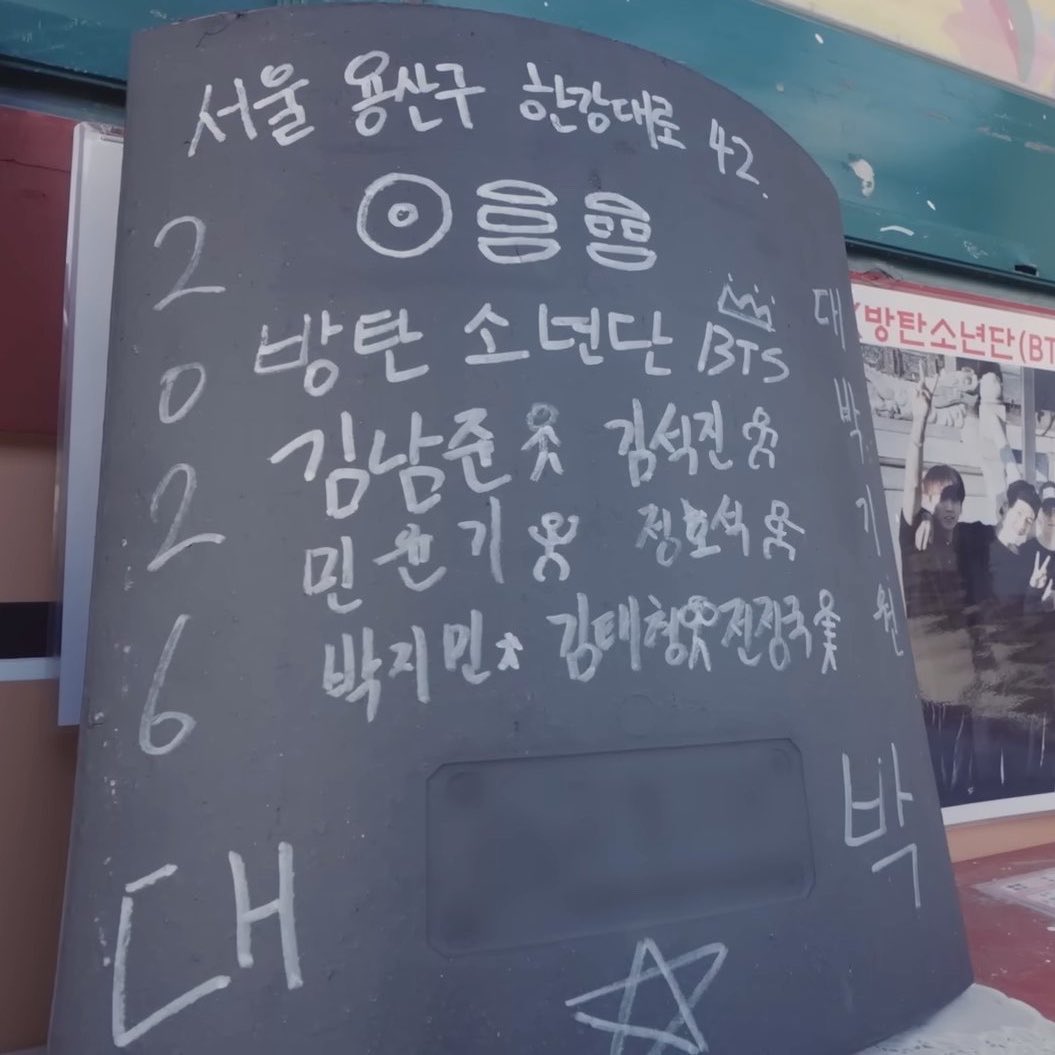 서울 용산구 한강대로 42.
2026
방탄소년단 BTS
김남준 김석진
민윤기 정호석
박지민 김태형 전정국
대박기원
대박
방탄소년단(BT